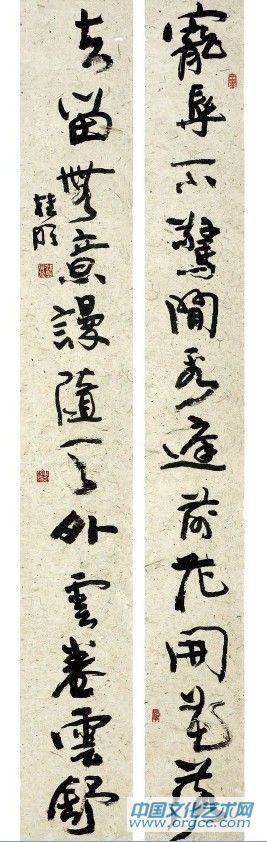 寵辱不驚閒看庭前花開花落
去留無意謾隨天外雲卷雲舒
中国文化艺术网
www.orgcc.com